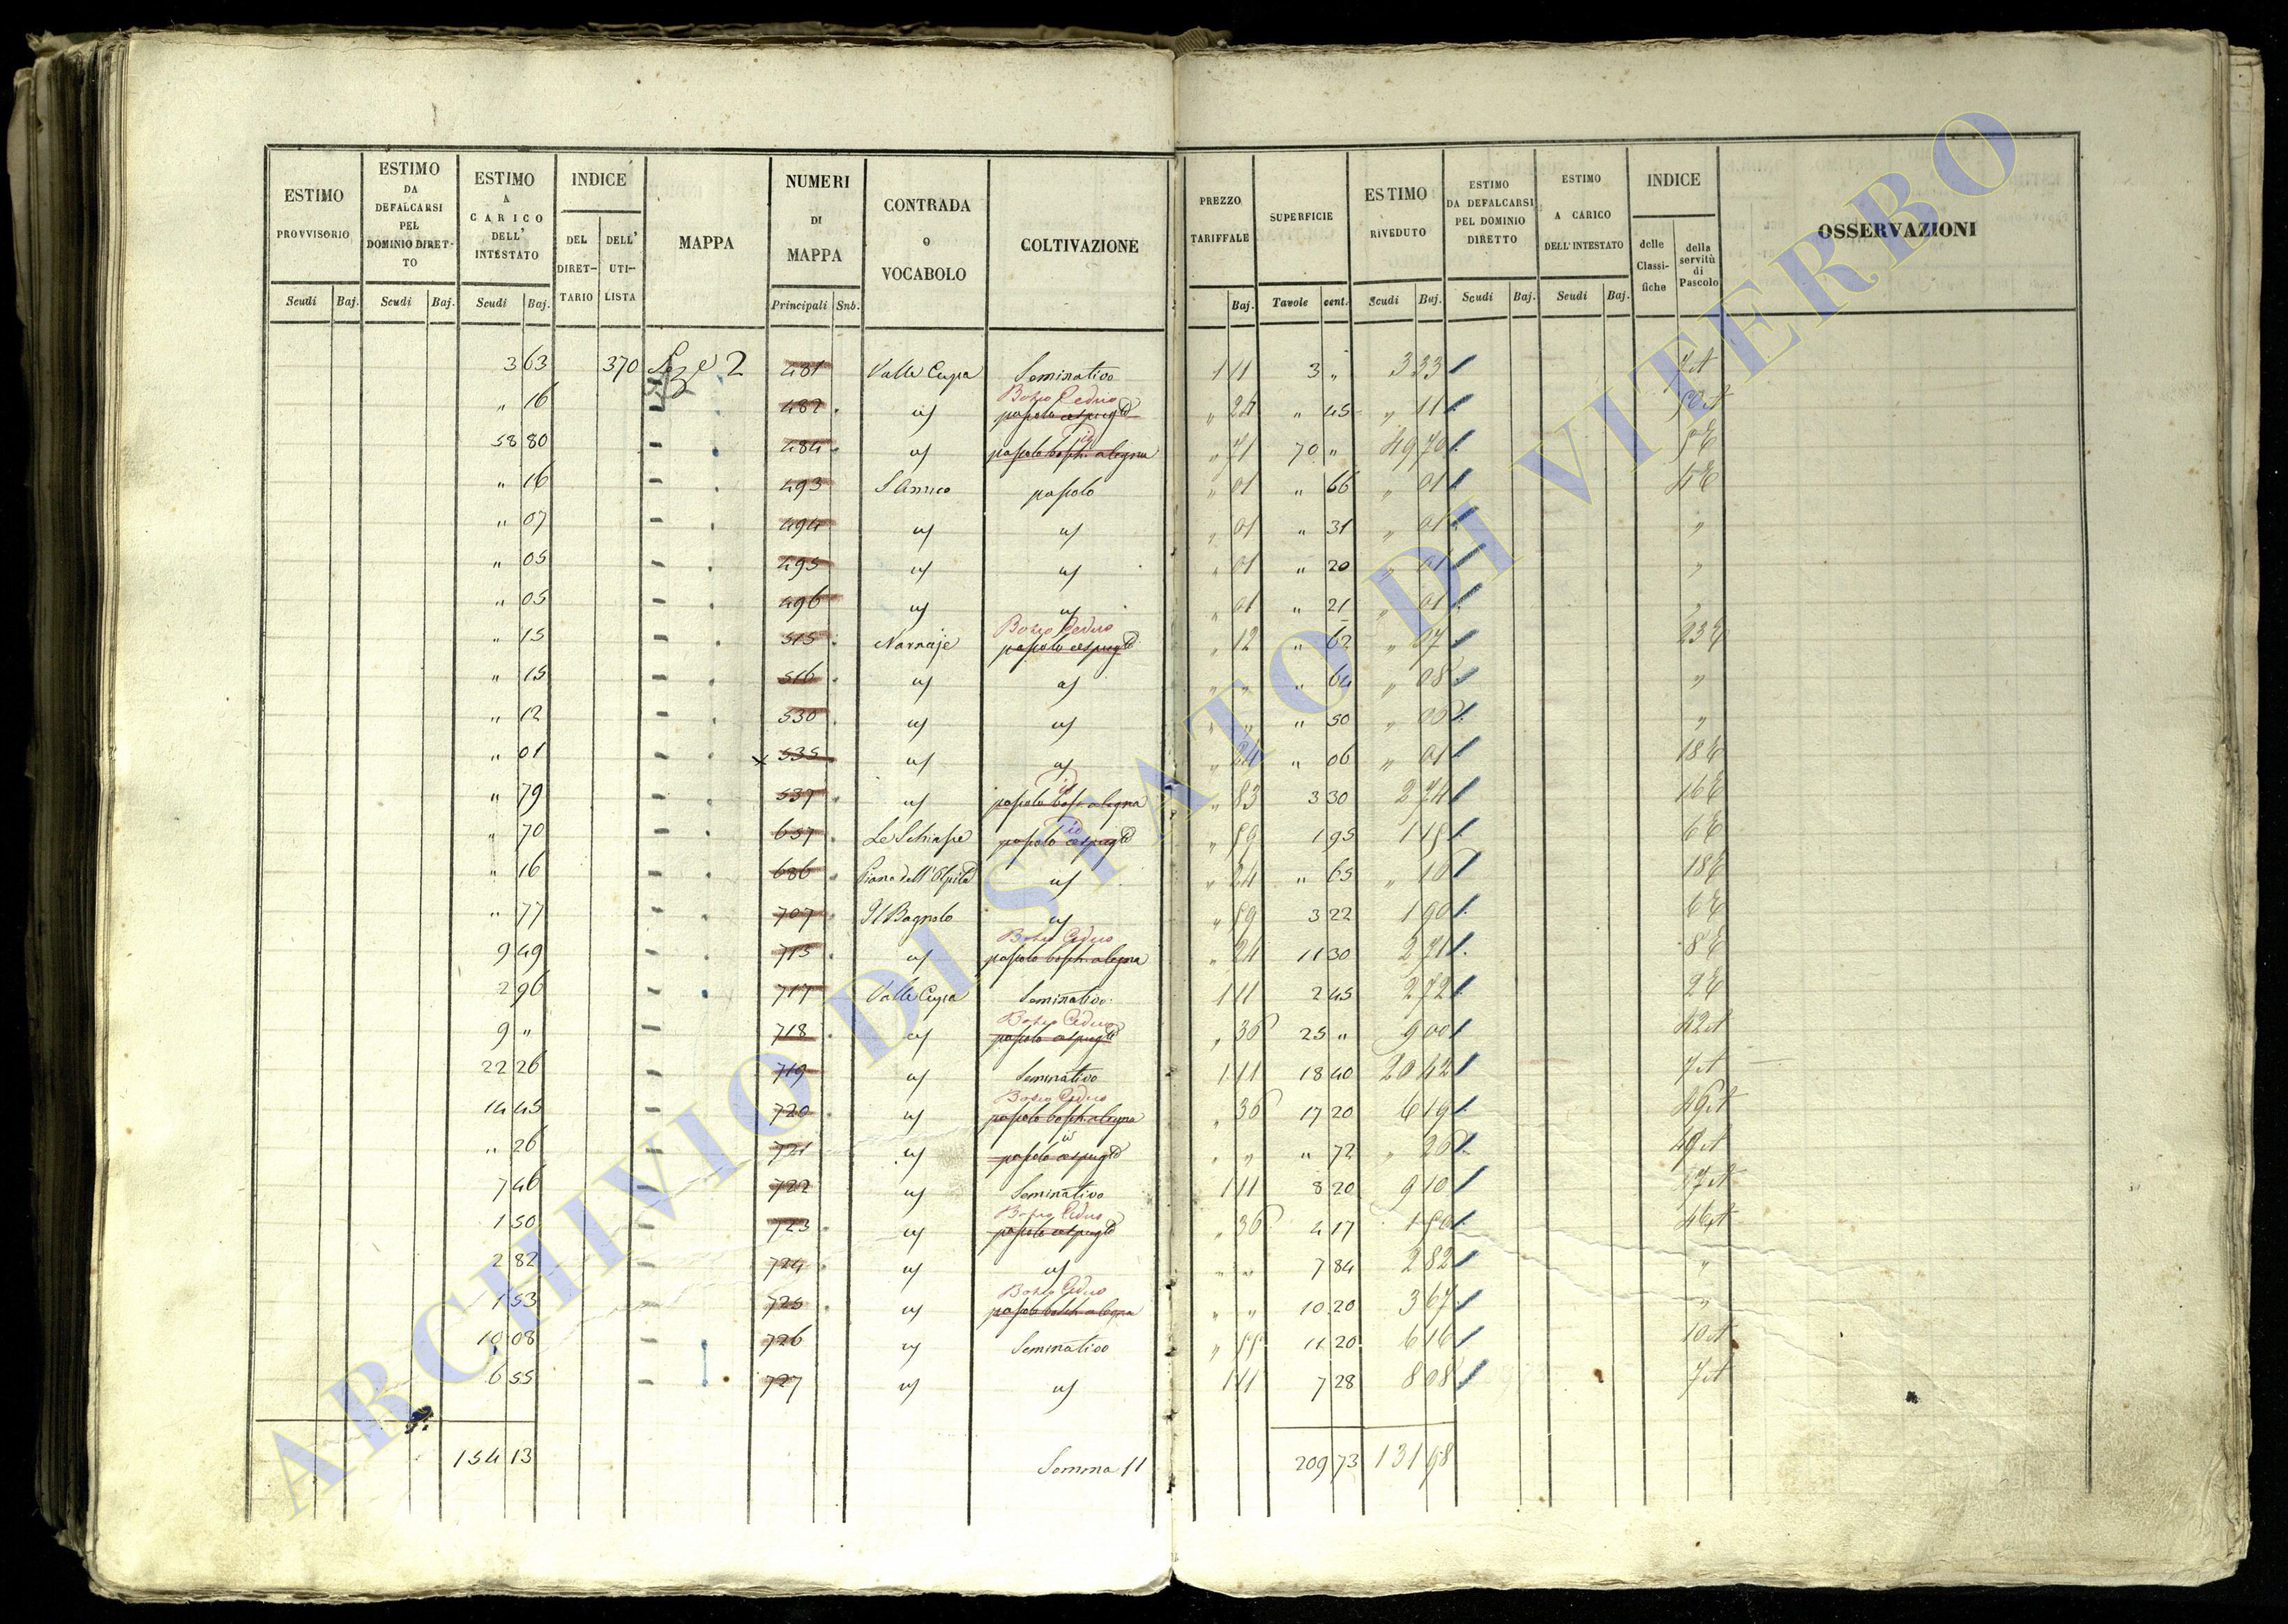 ESTIMO PROVVISORIO Scudi Baj.
ESTIMO DA DEFALCARSI PEL DOMINIO DIRETTO Scudi Baj.
ESTIMO A CARICO DELL' INTESTATO Scudi Baj.
INDICE DEL DIRETTARIO DELL' UTILISTA
MAPPA
NUMERI DI MAPPA Principali Snb.
CONTRADA O VOCABOLO
COLTIVAZIONE
PREZZO TARIFFALE Baj.
SUPERFICIE Tavole cent.
ESTIMO RIVEDUTO Scudi Baj.
ESTIMO DA DEFALCARSI PEL DOMINIO DIRETTO Scudi Baj.
ESTIMO A CARICO DELL'INTESTATO Scudi Baj.
INDICE delle Classifiche della servitù di Pascolo
OSSERVAZIONI
3 63 370 Sez e 2 481 Valle Cupa Seminativo 1 11 3 " 3 33 7A
" 16 482 Bosco Ceduo pascolo cespug to " 24 " 45 " 11
58 80 484 pascolo bosch. a legna " 71 70 " 49 70
" 16 493 pascolo " 01 " 66 " 01 4E
" 07 494 " 01 " 31 " 01 "
" 05 495 " 01 " 20 " 01 "
" 05 496 " 01 " 21 " 01 "
" 15 515 Bosco Ceduo pascolo cespug to " 12 " 62 " 07 23E
" 15 516 " " " 64 " 08 "
" 12 530 " " " 50 "
" 01 535 " 24 " 06 " 01 18E
" 79 537 pascolo bosch. a legna " 83 3 30 2 74 16E
" 70 657 pascolo cespug to " 59 1 95 1 15 6E
" 16 686 " 24 " 65 18E
" 77 707 Il Bagnolo " 59 3 22 1 90 6E
9 49 713 Bosco Ceduo pascolo bosch. a legna " 24 11 30 2 71 8E
2 96 717 Valle Cupa Seminativo 1 11 2 45 2 72 2E
9 " 718 Bosco Ceduo pascolo cespug to " 36 25 " 9 00 42A
22 26 719 Seminativo 1 11 18 40 20 42 7A
14 45 720 Bosco Ceduo pascolo bosch. a legna " 36 17 20 6 19
" 26 721 pascolo cespug to " " " 72 " 26
7 46 722 Seminativo 1 11 8 20 9 10
1 50 723 Bosco Ceduo pascolo cespug to " 36 4 17 1 50 46A
2 82 724 " " 7 84 2 82 "
1 53 725 Bosco Ceduo pascolo bosch. a legna " " 10 20 3 67 "
10 08 726 Seminativo " 55 11 20 6 16 10A
6 55 727 1 11 7 28 8 08 7A
154 13 Somma 11 209 73 131 98
ARCHIVIO DI STATO DI VITERBO